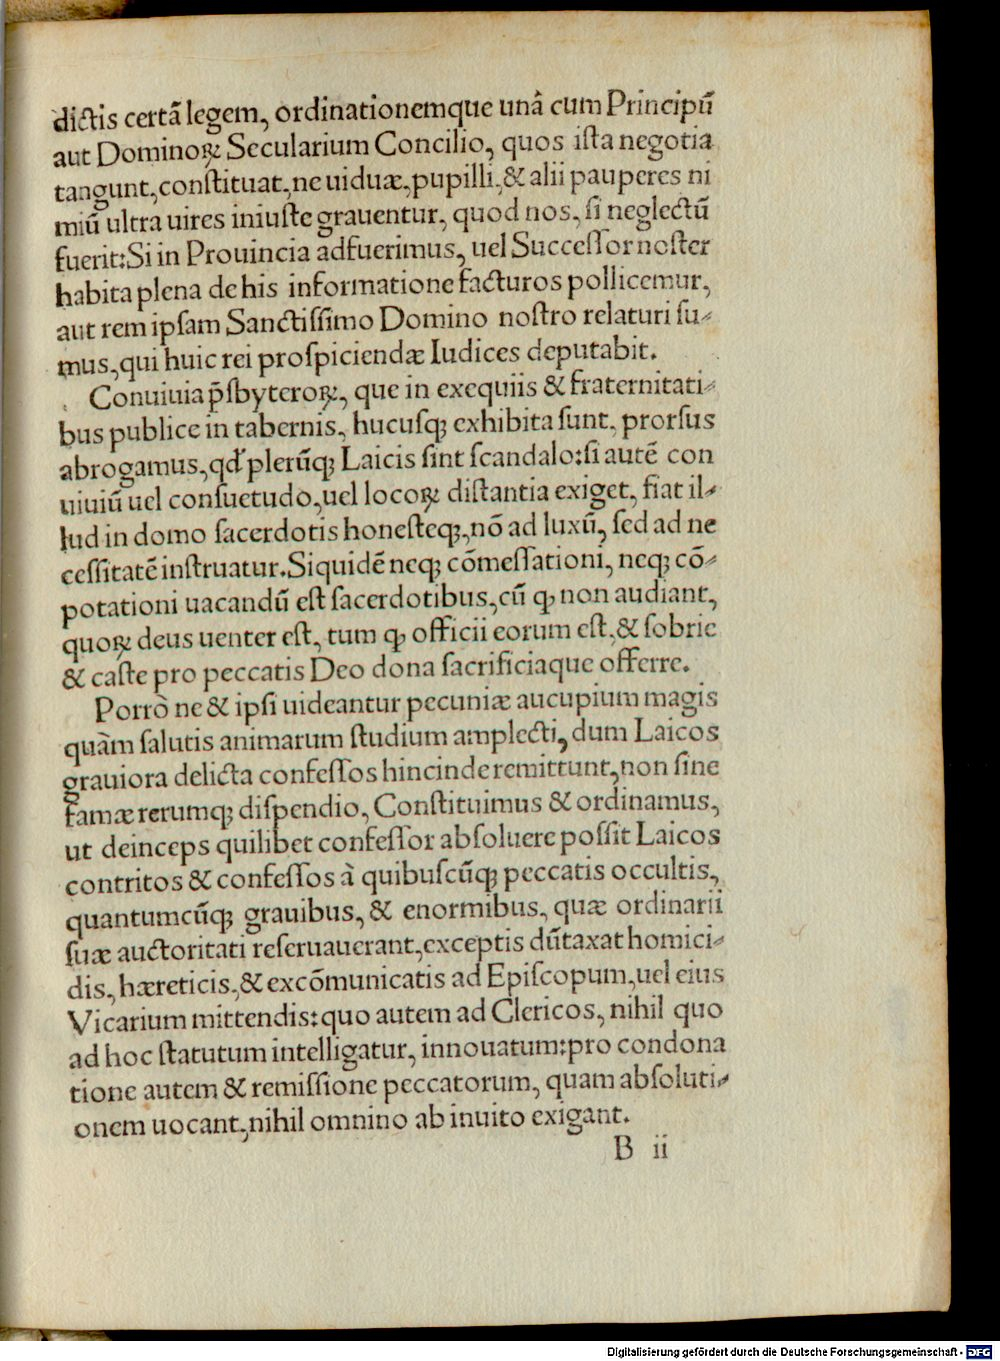 dictis certã legem, ordinationemque unâ cum Principũ
aut Dominoꝝ Secularium Concilio, quos ista negotia
tangunt, constituat, ne uiduæ, pupilli, & alii pauperes ni
miũ ultra uires iniuste grauentur, quod nos, si neglectũ
fuerit: Si in Prouincia adfuerimus, uel Successor noster
habita plena de his informatione facturos pollicemur,
aut rem ipsam Sanctissimo Domino nostro relaturi su⸗
mus, qui huic rei prospiciendæ Iudices deputabit.
Conuiuia p̃sbyteroꝝ, que in exequiis & fraternitati⸗
bus publice in tabernis, hucusq; exhibita sunt, prorsus
abrogamus, qđ plerũq; Laicis sint scandalo: si autẽ con
uiuiũ uel consuetudo, uel locoꝝ distantia exiget, fiat il⸗
lud in domo sacerdotis honesteq;, nõ ad luxũ, sed ad ne
cessitatẽ instruatur. Siquidẽ neq; cõmessationi, neq; cõ⸗
potationi uacandũ est sacerdotibus, cũ ꝙ non audiant,
quoꝝ deus uenter est, tum ꝙ officii eorum est, & sobrie
& caste pro peccatis Deo dona sacrificiaque offerre.
Porrò ne & ipsi uideantur pecuniæ aucupium magis
quàm salutis animarum studium amplecti, dum Laicos
grauiora delicta confessos hincinde remittunt, non sine
famæ rerumq; dispendio, Constituimus & ordinamus,
ut deinceps quilibet confessor absoluere possit Laicos
contritos & confessos à quibuscũq; peccatis occultis,
quantumcũq; grauibus, & enormibus, quæ ordinarii
suæ auctoritati reseruauerant, exceptis dũtaxat homici⸗
dis, hæreticis, & excõmunicatis ad Episcopum, uel eius
Vicarium mittendis: quo autem ad Clericos, nihil quo
ad hoc statutum intelligatur, innouatum: pro condona
tione autem & remissione peccatorum, quam absoluti⸗
onem uocant, nihil omnino ab inuito exigant.
B ii
Digitalisierung gefördert durch die Deutsche Forschungsgemeinschaft - DFG